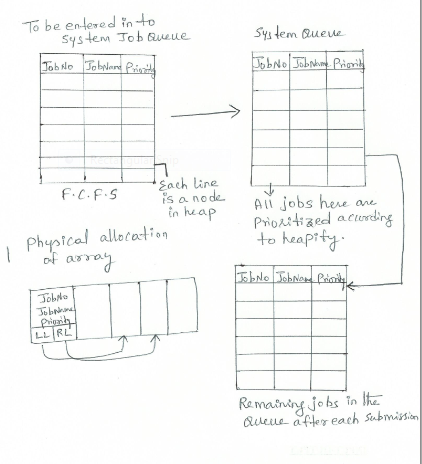 To be entered in to
System Job Queue
JobNo JobName Priority
F.C.F.S
Each line
is a node
in heap
System Queue
JobNo JobName Priority
All jobs here are
Prioritized according
to heapify.
Physical allocation
of array
JobNo
JobName
Priority
LL RL
JobNo JobName Priority
Remaining jobs in the
Queue after each submission